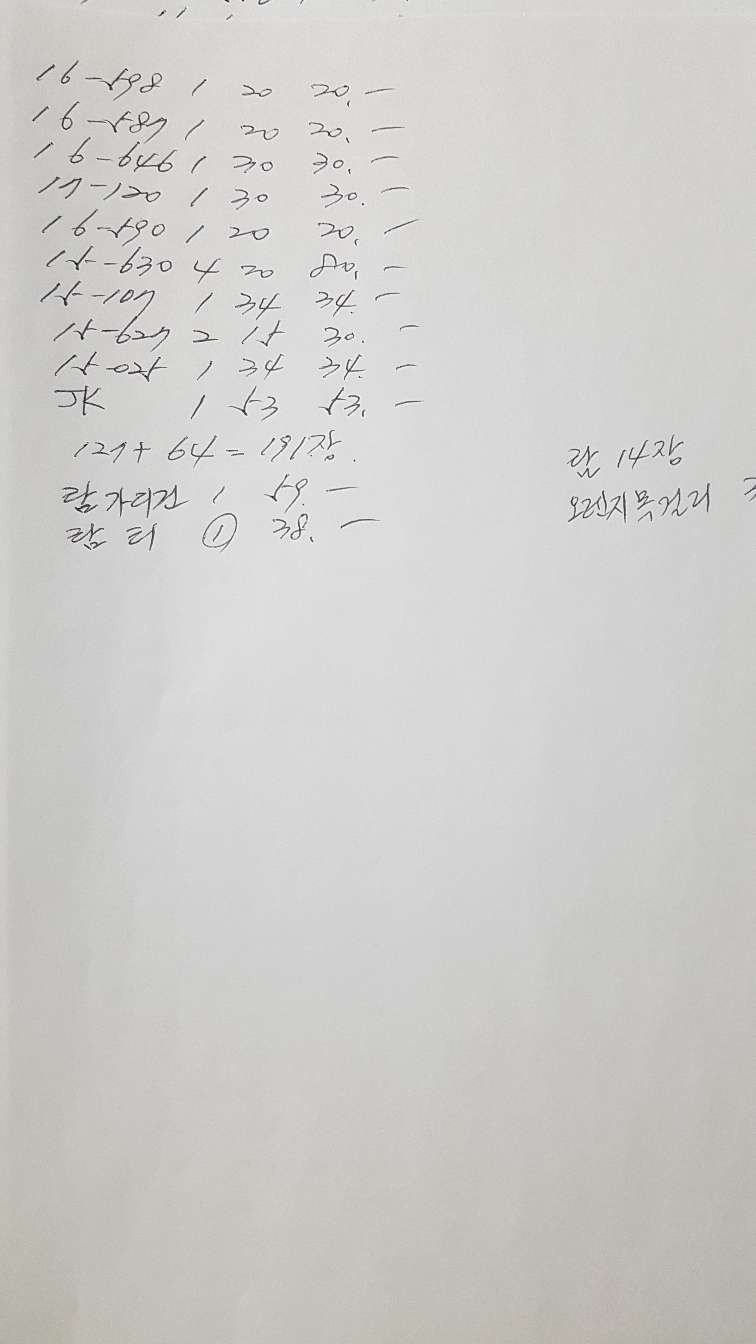 16-598 1 20 20.-
16-587 1 20 20.-
16-646 1 30 30.-
17-120 1 30 30.-
16-590 1 20 20.-
15-630 4 20 80.-
15-107 1 34 34.-
15-627 2 15 30.-
15-025 1 34 34.-
JK 1 53 53.-
127+64=191장.
람가디건 1 59.-
람티 ① 38.-
람 14장
오렌지목걸이